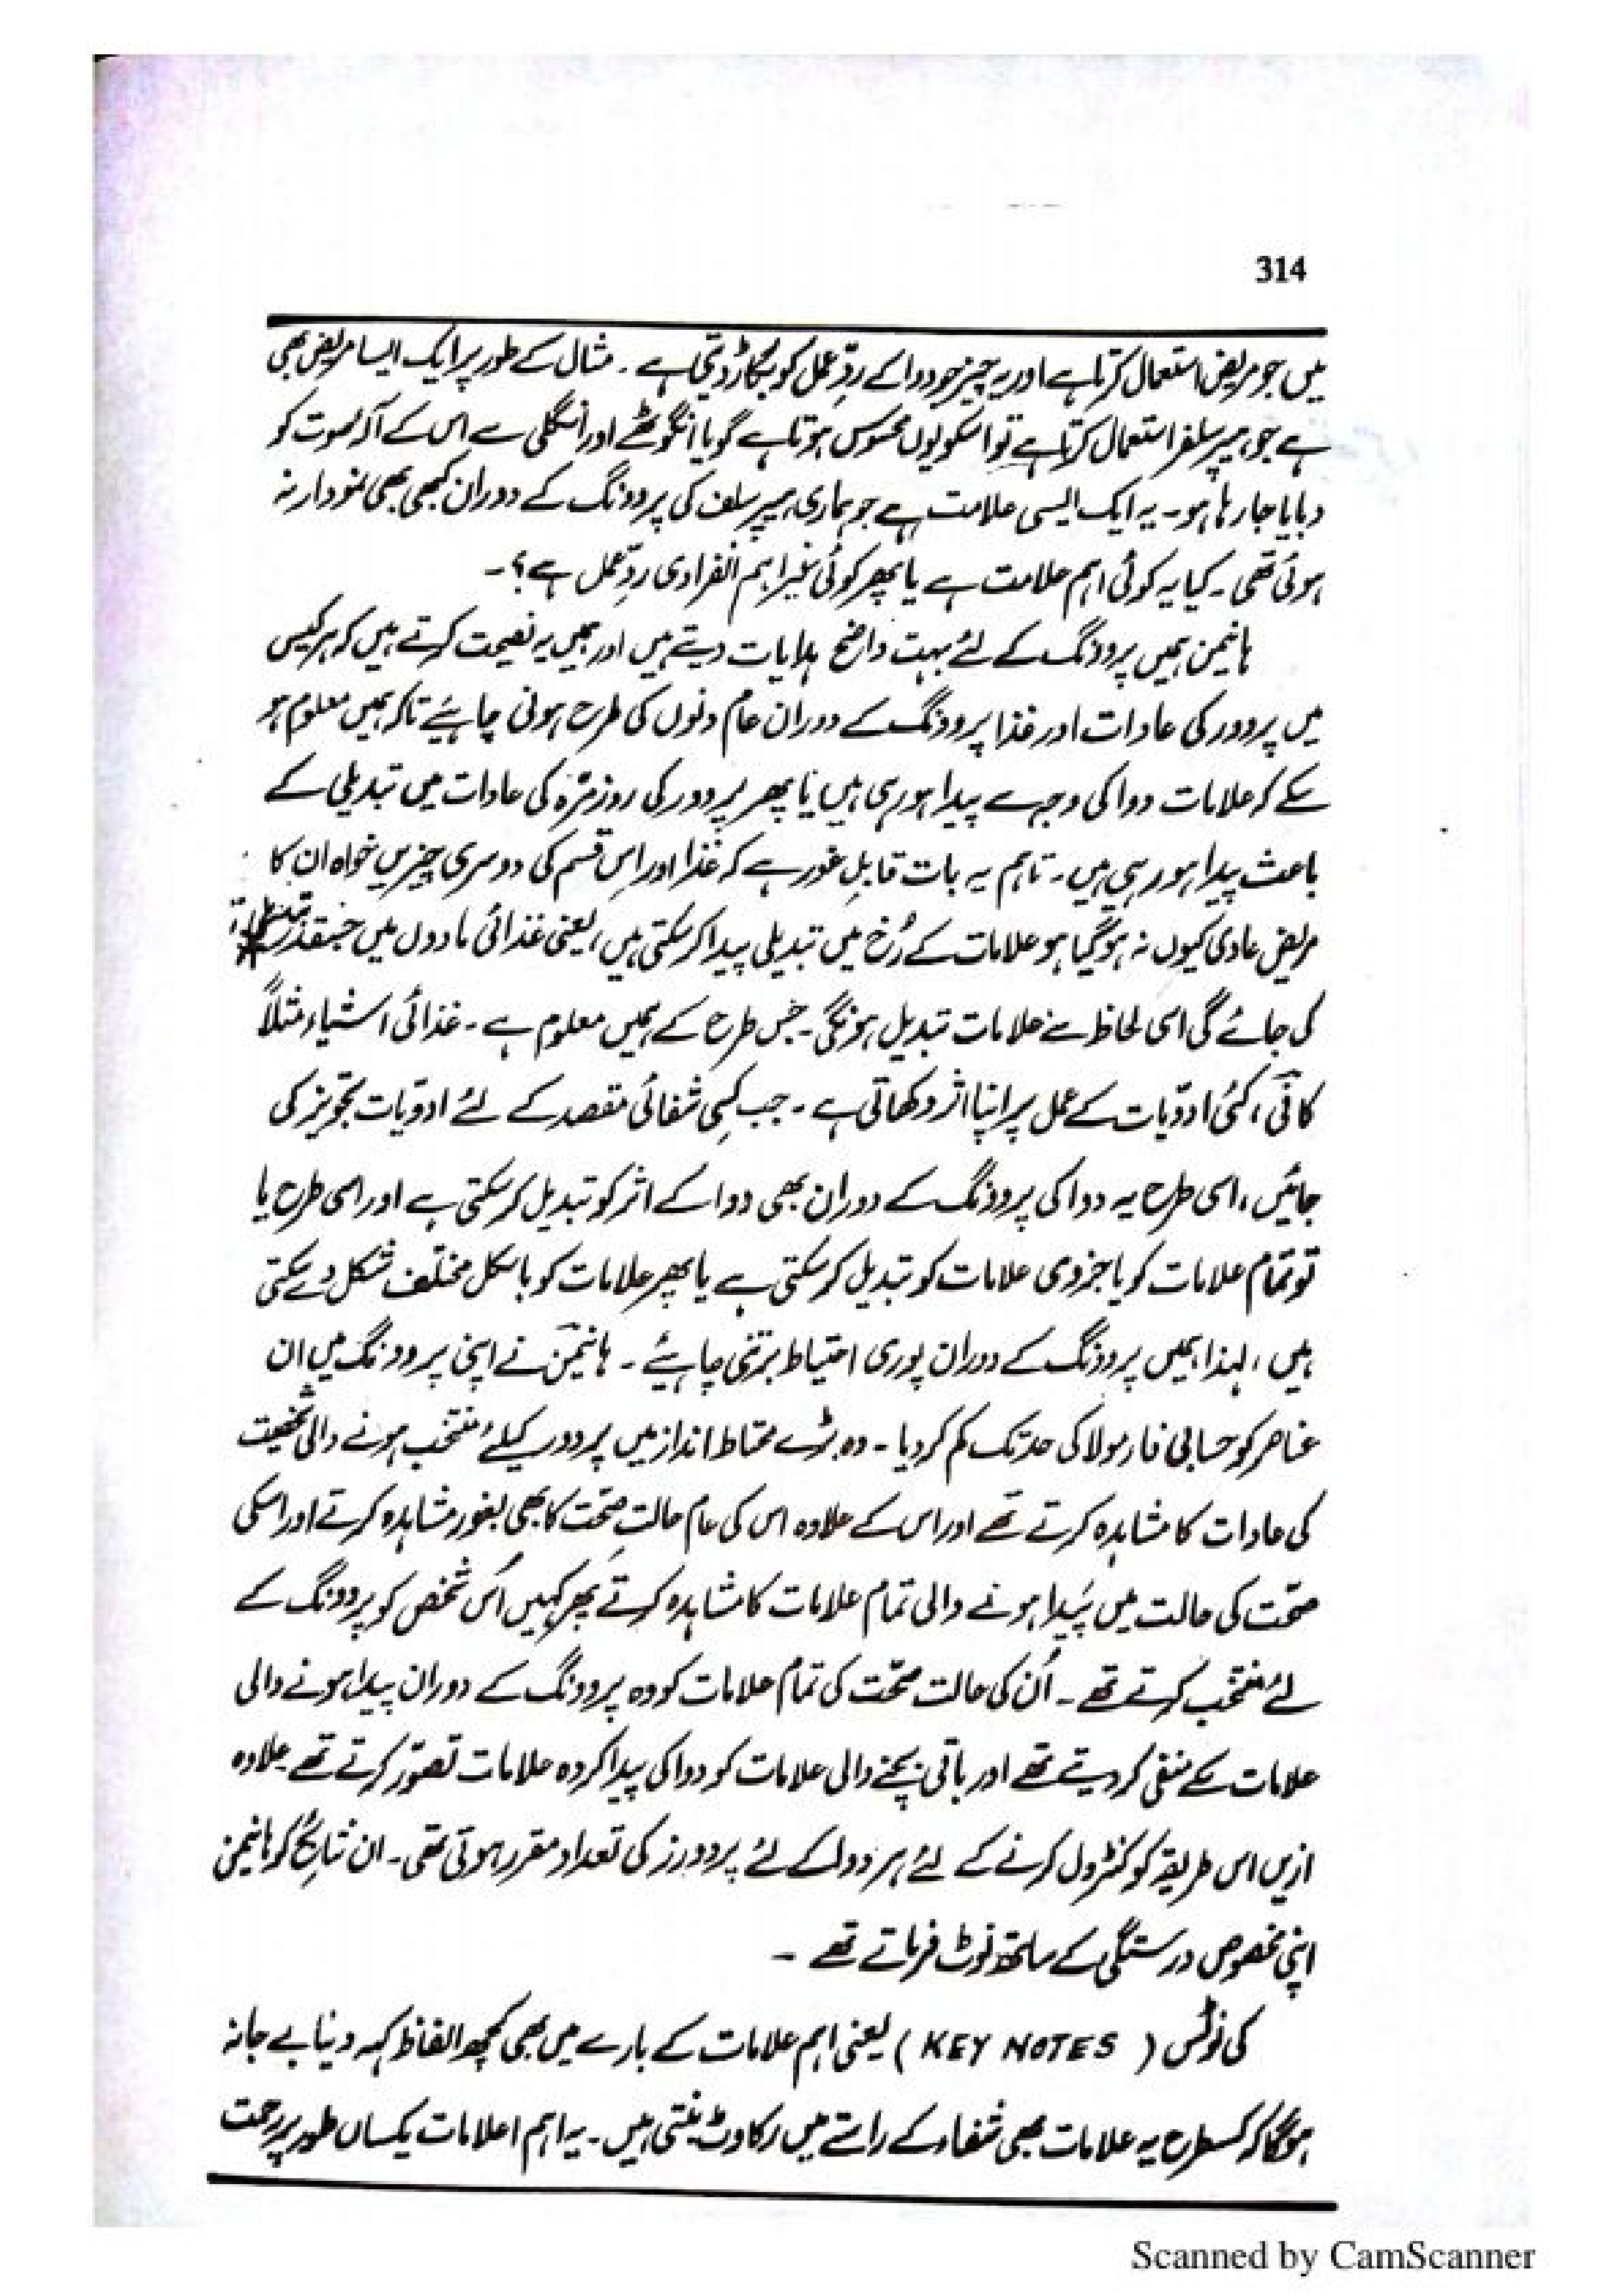 314
میں جو مریض استعمال کرتا ہے اور یہ چیز جو دوا کے ردِّ عمل کو بگاڑ دیتی ہے ۔ مثال کے طور پر ایک ایسا مریض بھی
ہے جو ہیپر سلفر استعمال کرتا ہے تو اسکو یوں محسوس ہوتا ہے گویا انگوٹھے اور انگلی سے اس کے آلہ صوت کو
دبایا جا رہا ہو ۔ یہ ایک ایسی علامت ہے جو ہماری ہیپر سلف کی پروونگ کے دوران کبھی بھی نمودار نہ
ہوئی تھی ۔ کیا یہ کوئی اہم علامت ہے یا پھر کوئی غیر اہم انفرادی ردِّ عمل ہے ؟ ۔
ہانیمن ہمیں پروونگ کے لئے بہت واضح ہدایات دیتے ہیں اور ہمیں یہ نصیحت کرتے ہیں کہ ہر کیس
میں پروور کی عادات اور غذا پروونگ کے دوران عام دنوں کی طرح ہونی چاہیئے تاکہ ہمیں معلوم ہو
سکے کہ علامات دوا کی وجہ سے پیدا ہو رہی ہیں یا پھر پروور کی روز مرّہ کی عادات میں تبدیلی کے
باعث پیدا ہو رہی ہیں ۔ تاہم یہ بات قابلِ غور ہے کہ غذا اور اِس قسم کی دوسری چیزیں خواہ ان کا
مریض عادی کیوں نہ ہو گیا ہو علامات کے رُخ میں تبدیلی پیدا کر سکتی ہیں ، یعنی غذائی مادوں میں جسقدر تبدیلی
کی جائے گی اسی لحاظ سے علامات تبدیل ہونگی ۔ جس طرح کے ہمیں معلوم ہے ۔ غذائی اشیاء مثلاً
کافی ، کئی ادویّات کے عمل پر اپنا اثر دکھاتی ہے ۔ جب کسی شفائی مقصد کے لئے ادویات تجویز کی
جائیں ، اسی طرح یہ دوا کی پروونگ کے دوران بھی دوا کے اثر کو تبدیل کر سکتی ہے اور اسی طرح یا
تو تمام علامات کو یا جزوی علامات کو تبدیل کر سکتی ہے یا پھر علامات کو بالکل مختلف شکل دے سکتی
ہیں ، لہذا ہمیں پروونگ کے دوران پوری احتیاط برتنی چاہیئے ۔ ہانیمنؔ نے اپنی پروونگ میں ان
عناصر کو حسابی فارمولا کی حد تک کم کر دیا ۔ وہ بڑے محتاط انداز میں پروور کیلئے منتخب ہونے والی شخصیت
کی عادات کا مشاہدہ کرتے تھے اور اس کے علاوہ اس کی عام حالتِ صحّت کا بھی بغور مشاہدہ کرتے اور اسکی
صحّت کی حالت میں پَیدا ہونے والی تمام علامات کا مشاہدہ کرتے پھر کہیں اُس شخص کو پروونگ کے
لئے منتخب کرتے تھے ۔ اُن کی حالت صحّت کی تمام علامات کو وہ پروونگ کے دوران پیدا ہونے والی
علامات سے منفی کر دیتے تھے اور باقی بچنے والی علامات کو دوا کی پیدا کردہ علامات تصوّر کرتے تھے علاوہ
ازیں اس طریقہ کو کنٹرول کرنے کے لئے ہر دوا کے لئے پروورز کی تعداد مقرر ہوتی تھی ۔ ان نتائج کو ہانیمن
اپنی مخصوص درستگی کے ساتھ نوٹ فرماتے تھے ۔
کی نوٹس ( KEY NOTES ) یعنی اہم علامات کے بارے میں بھی کچھ الفاظ کہہ دینا بے جا نہ
ہوگا کہ کسطرح یہ علامات بھی شفاء کے راستے میں رکاوٹ بنتی ہیں ۔ یہ اہم اعلامات یکساں طور پر رحمت
Scanned by CamScanner